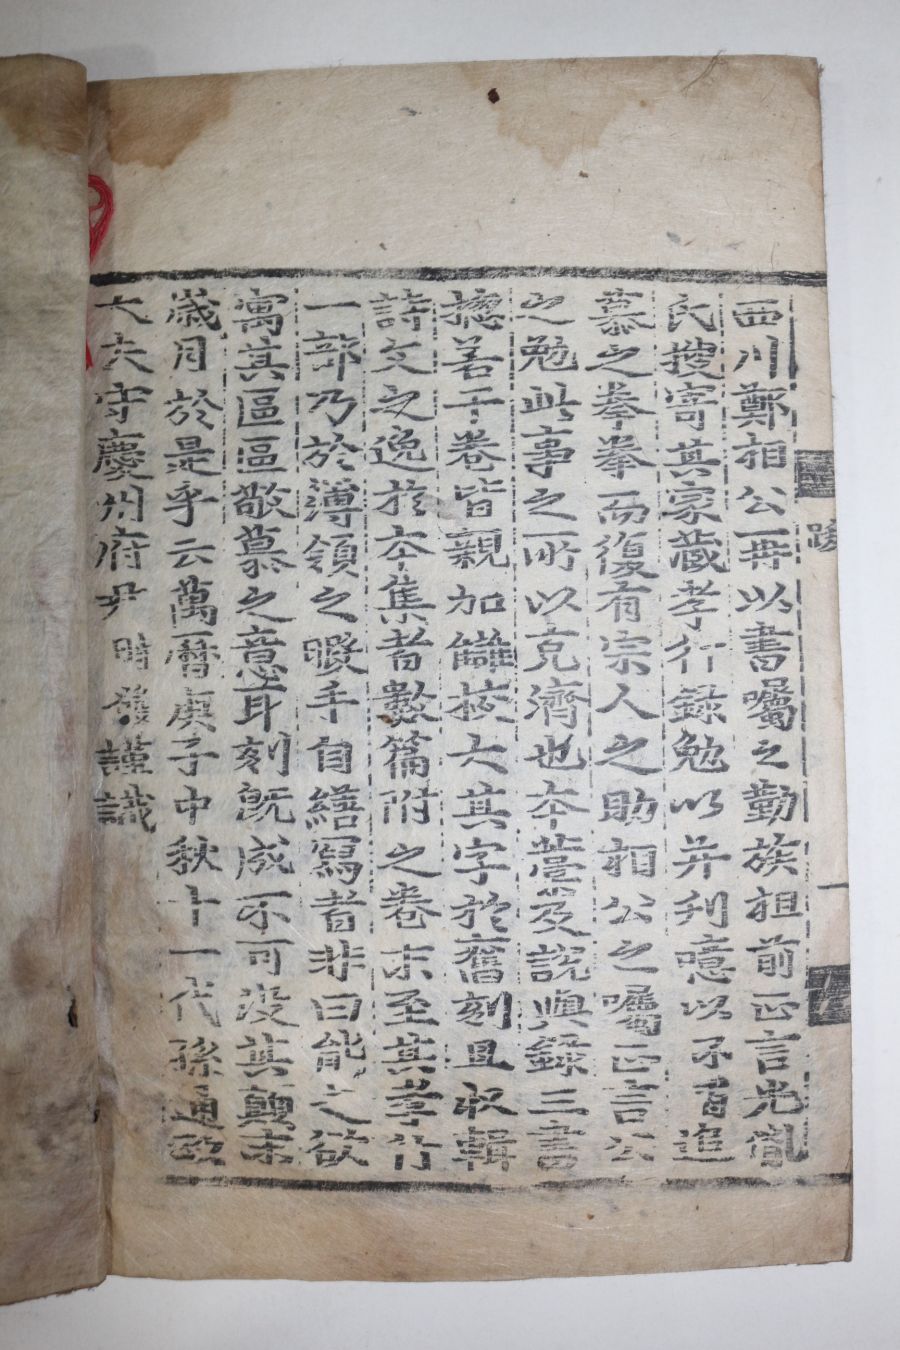 西川鄭相公再以書囑之勤族祖前正言光胤
氏搜寄其家藏孝行錄勉以幷刊噫以不肖追
慕之拳拳而復有宗人之助相公之囑正言公
之勉此事之所以克濟也本藁及說與錄三書
摠若干卷皆親加讎挍大其字於舊刻且收輯
詩文之逸於本集者數篇附之卷末至其孝行
一部乃於簿領之暇手自繕寫者非曰能之欲
寓其區區敬慕之意耳刻旣成不可沒其顚末
歲月於是乎云萬曆庚子中秋十一代孫通政
大夫守慶州府尹 時發謹識
跋
一